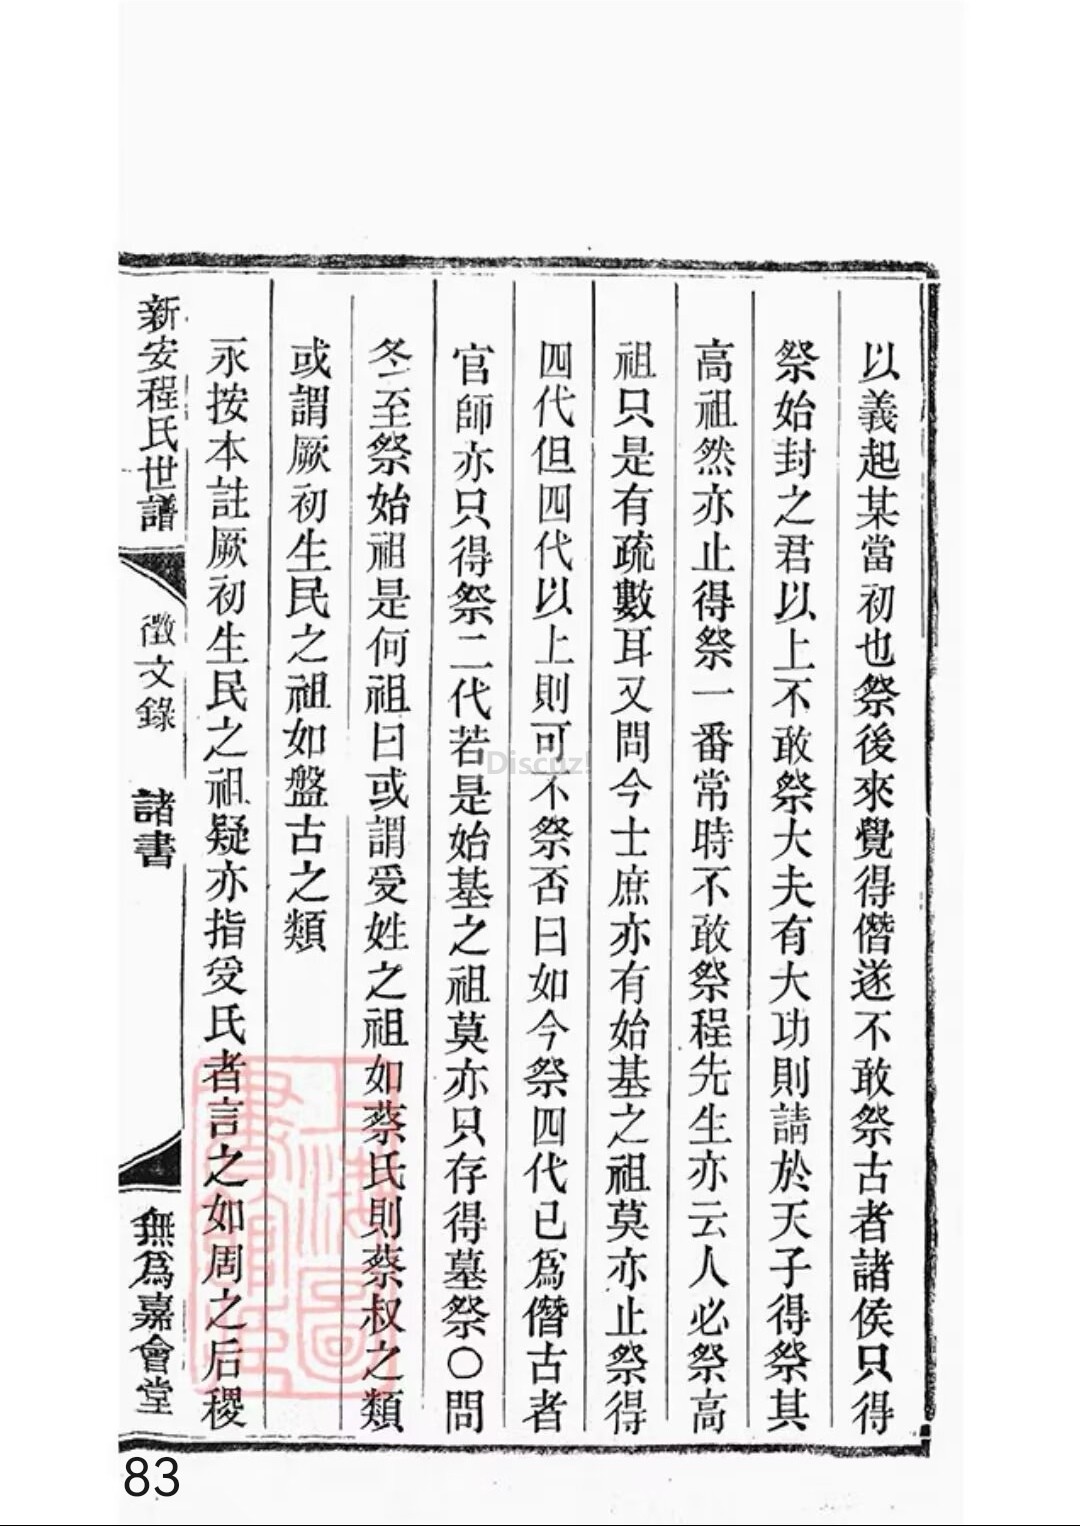 以義起某當初也祭後來覺得僭遂不敢祭古者諸侯只得
祭始封之君以上不敢祭大夫有大功則請於天子得祭其
高祖然亦止得祭一番常時不敢祭程先生亦云人必祭高
祖只是有疏數耳又問今士庶亦有始基之祖莫亦止祭得
四代但四代以上則可不祭否曰如今祭四代已為僭古者
官師亦只得祭二代若是始基之祖莫亦只存得墓祭○問
冬至祭始祖是何祖曰或謂受姓之祖如蔡氏則蔡叔之類
或謂厥初生民之祖如盤古之類
永按本註厥初生民之祖疑亦指受氏者言之如周之后稷
新安程氏世譜
徵文錄 諸書
無為嘉會堂
上海圖書館藏
Discuz!
83